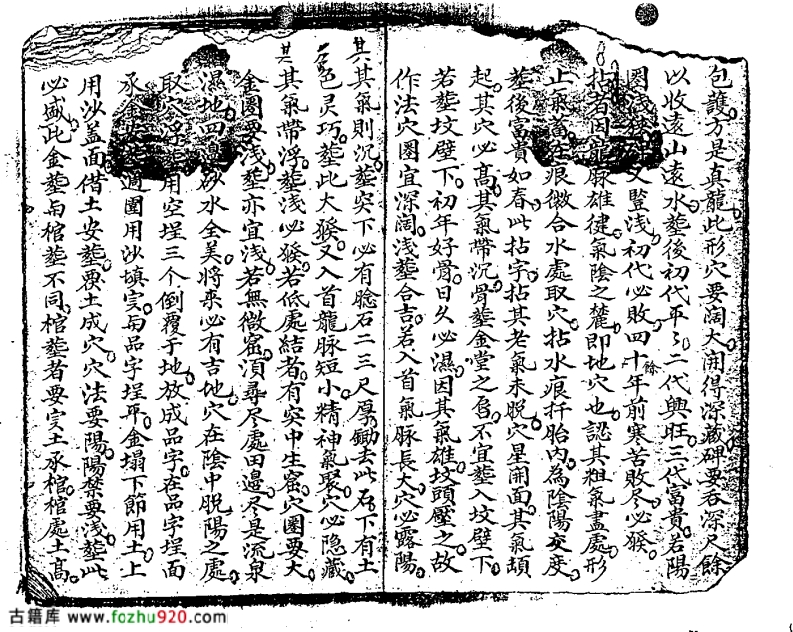 包護方是真龍此形穴要闊大開得深藏碑要吞深尺餘
以收遠山遠水塟後初代平々二代興旺三代富貴若陽
圈浅 又豎浅初代必敗四十餘年前寒苦敗尽必發
拈者因龍脉雄健氣陰之麓即地穴也認其粗氣盡處形
上 痕微合水處取穴拈水痕扦胎内為陰陽交度
塟後富貴如春此拈字拈其老氣未脱穴星開面其氣頑
起其穴必高其氣帶沉骨塟金堂之 不宜塟入坟壁下
若塟坟壁下初年好骨日久必濕因其氣雄坟頭壓之故
作法穴圈宜深闊浅塟合吉若入首氣脉長大穴必露陽
其其氣則沉塟突下必有聡石二三尺厚鋤去此石下有土
色灵巧塟此大發又入首龍脉短小精神氣聚穴必隐藏
其其氣帶浮塟浅必發若低處結者有突中生窩穴圈要大
金圈要浅塟亦宜浅若無微窩須尋尽處田邊尽是流泉
濕地四邊砂水全美將來必有吉地穴在陰中脱陽之處
取穴浮塟用空埕三个倒覆于地放成品字在品字埕面
承金 週圍用沙填實與品字埕平金塌下節用土上
用沙盖面借土安塟要土成穴穴法要陽陽禁要浅塟此
必盛此金塟與棺塟不同棺塟者要实土承棺棺處土高
古籍库 www.fozhu920.com